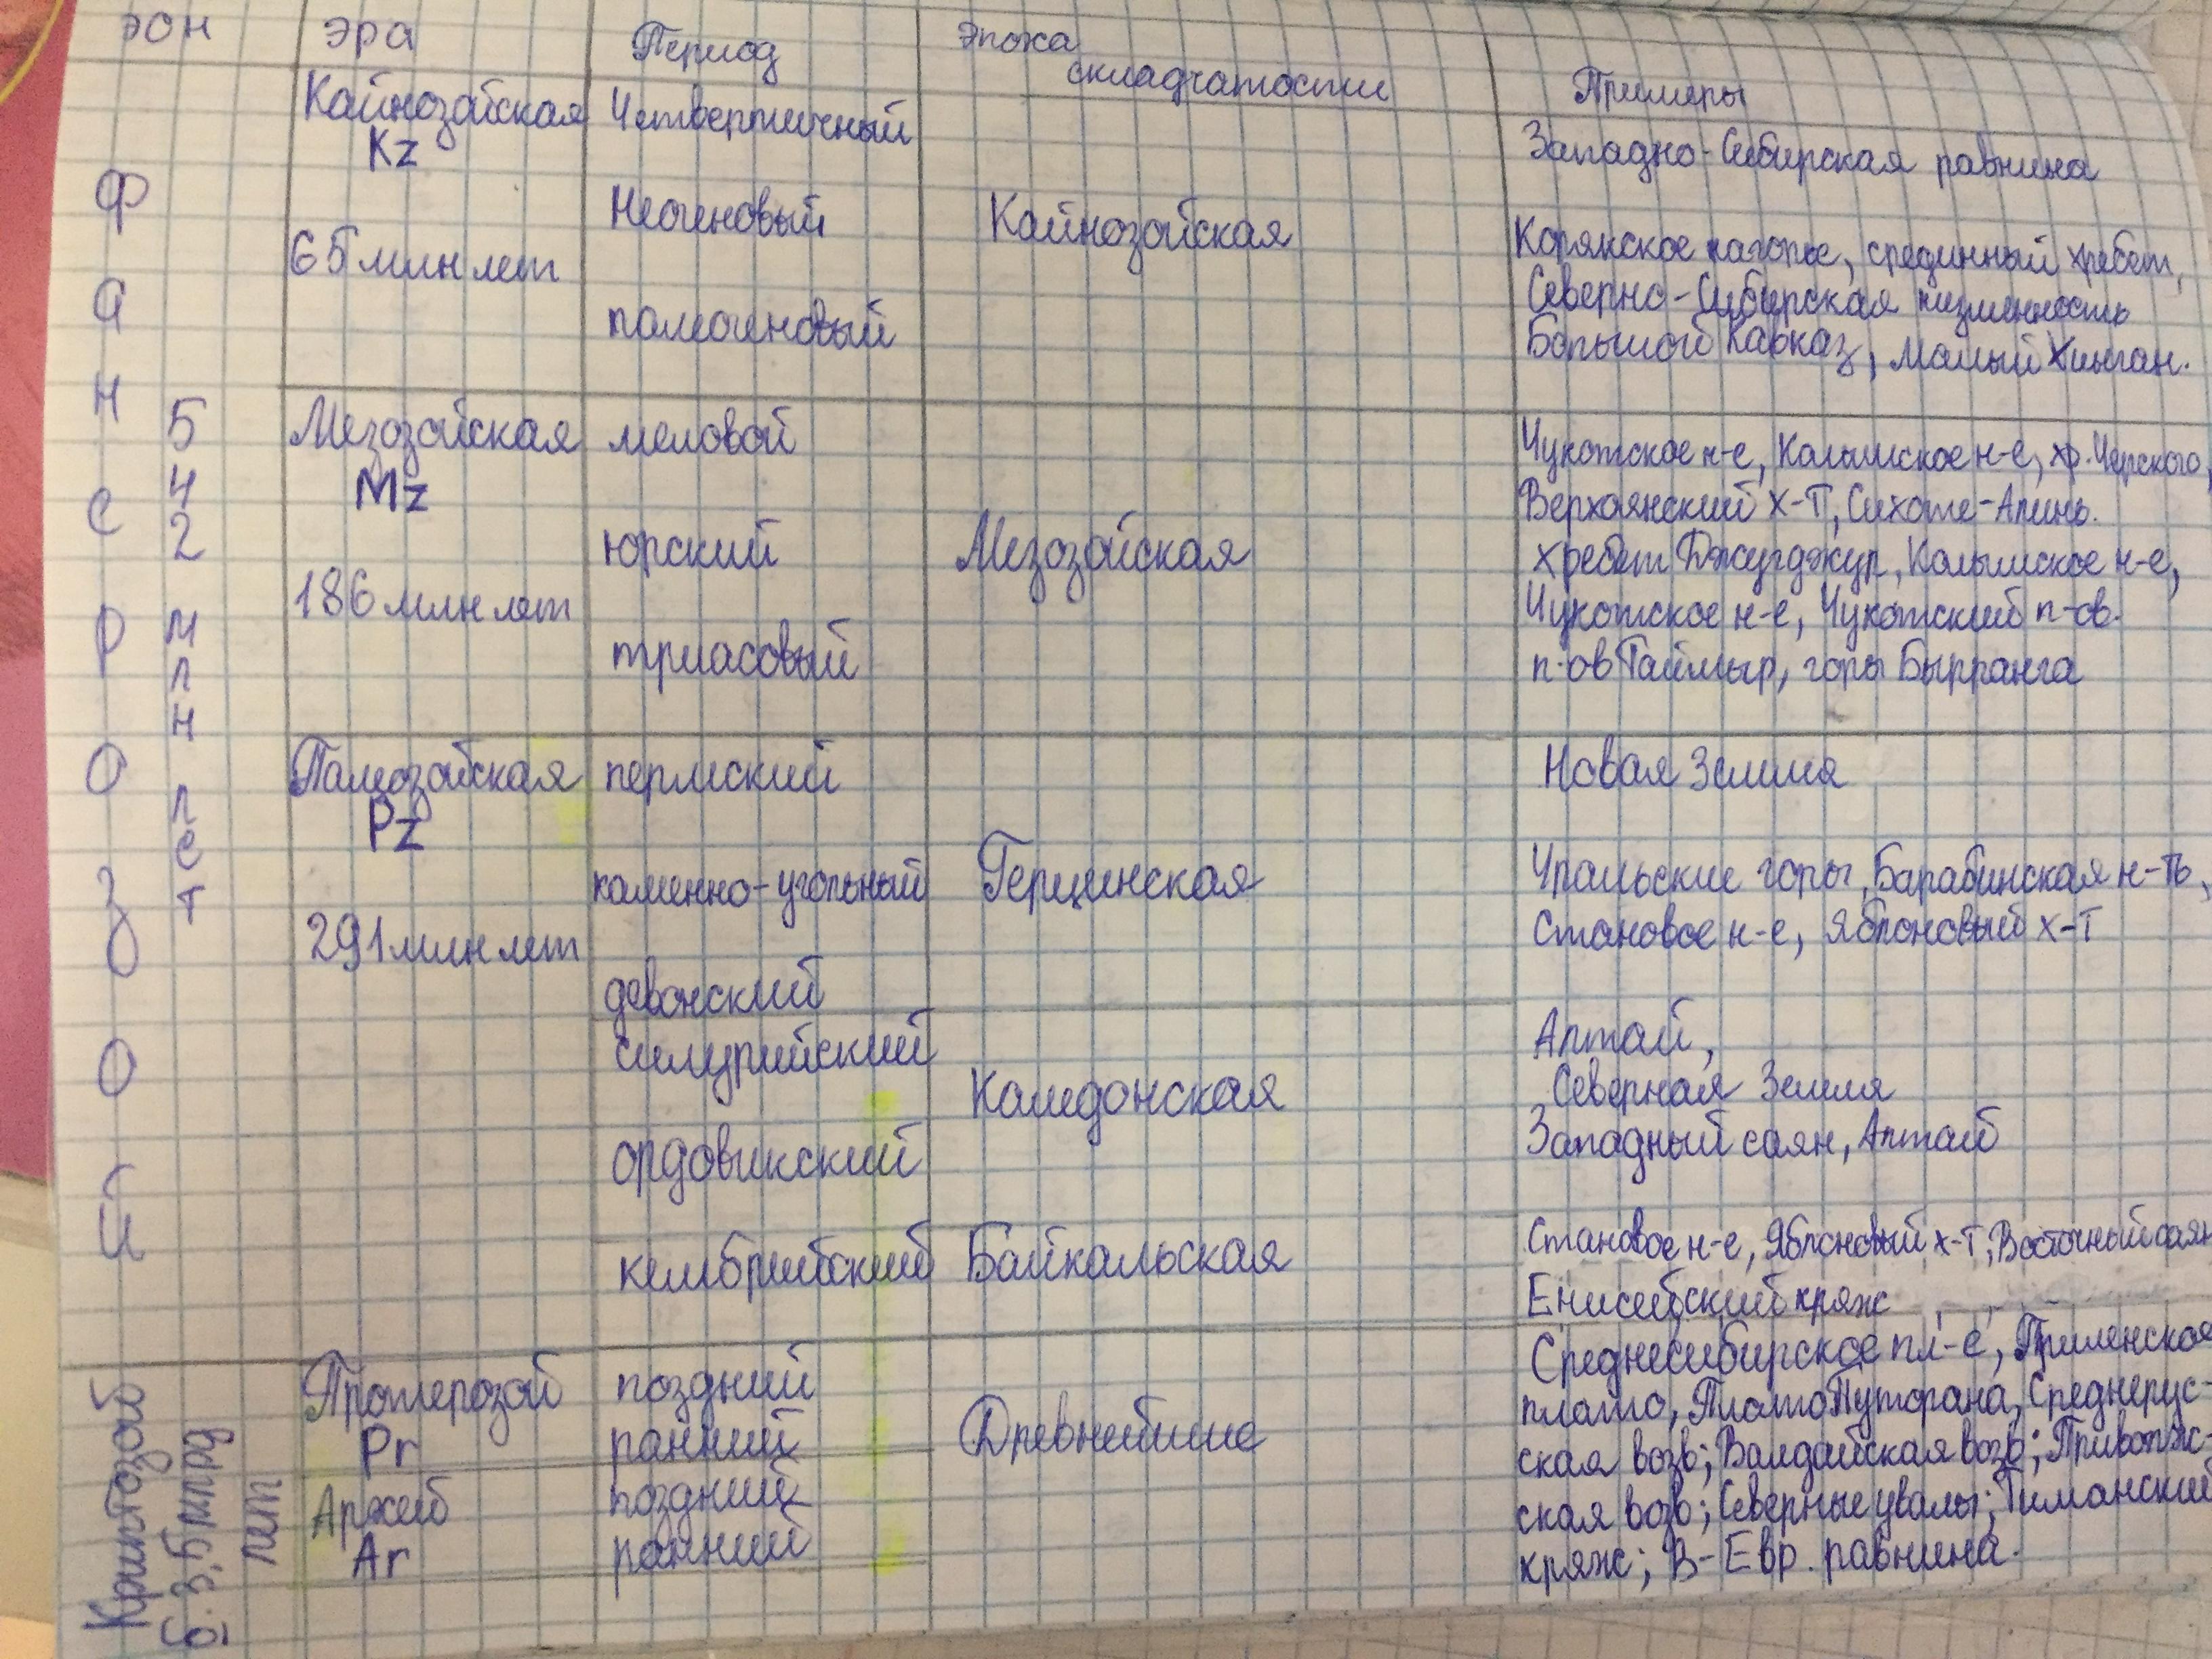 эон эра Период Эпоха складчатости Примеры
Фанерозой
542 млн лет
Кайнозойская Четвертичный
Kz
Западно-Сибирская равнина
Неогеновый Кайнозойская
65 млн лет
Корякское нагорье, срединный хребет,
Северно-Сибирская низменность
палеогеновый
Большой Кавказ, малый Хинган.
Мезозойская меловой
Mz
Чукотское н-е, Колымское н-е, хр. Черского,
Верхоянский х-т, Сихоте-Алинь.
юрский Мезозойская
хребет Джугджур, Колымское н-е,
186 млн лет
Чукотское н-е, Чукотский п-ов.
триасовый
п-ов Таймыр, горы Бырранга
Палеозойская пермский Новая Земля
Pz
каменно-угольный Герцинская
Уральские горы, Барабинская н-ть,
291 млн лет
Становое н-е, Яблоновый х-т
девонский
силурийский
Алтай,
Каледонская Северная Земля
ордовикский Западный саян, Алтай
кембрийский Байкальская
Становое н-е, Яблоновый х-т, Восточный саян
Енисейский кряж
Криптозой
б. 3,5 млрд
лет
Протерозой поздний
Pr ранний
Древнейшие
Архей поздний
Ar ранний
Среднесибирское пл-е, Приленское
плато, Плато Путорана, Среднерус-
ская возв; Валдайская возв; Приволж-
ская возв; Северные увалы; Тиманский
кряж; В-Евр. равнина.